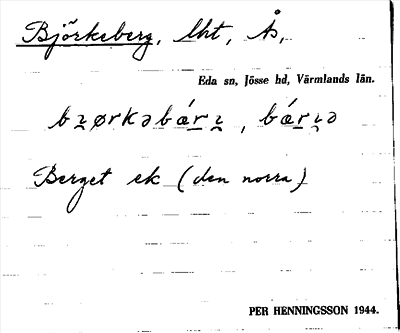 Björkeberg, lht, Ås,
Eda sn, Jösse hd, Värmlands län.
Berget ek (den norra)
PER HENNINGSSON 1944.